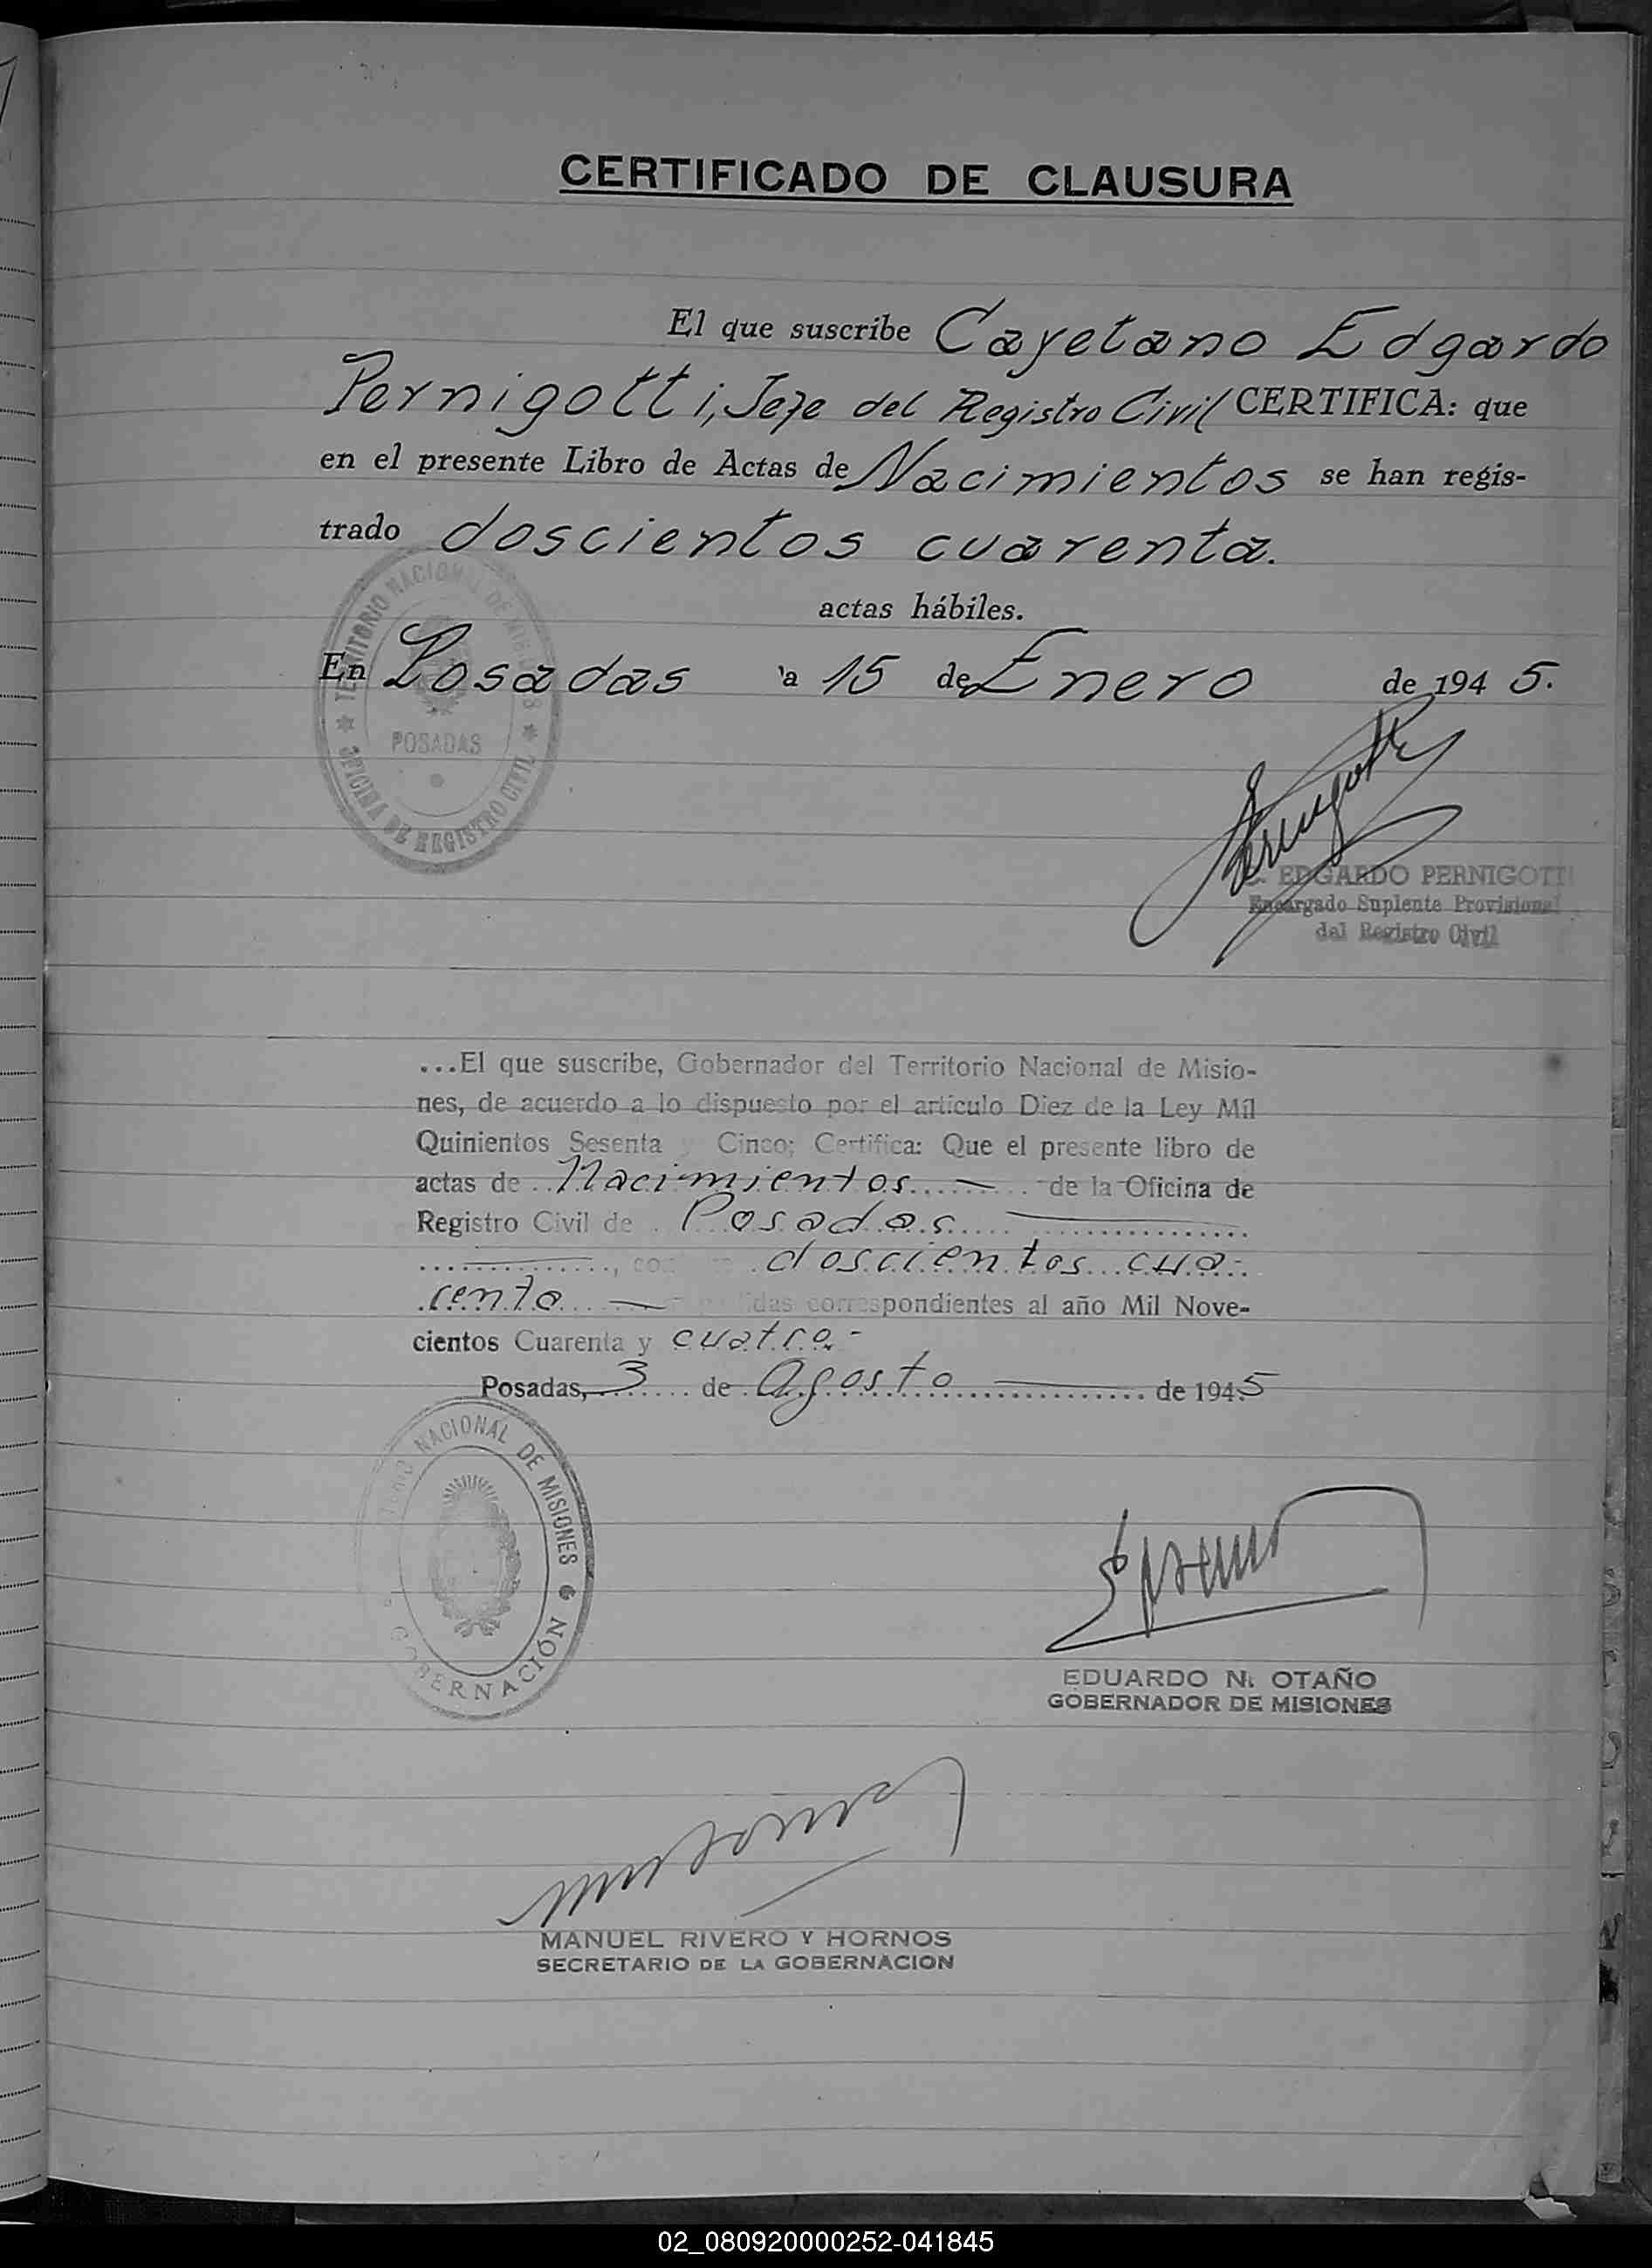 CERTIFICADO DE CLAUSURA
El que suscribe Cayetano Edgardo
Pernigotti, Jefe del Registro Civil CERTIFICA: que
en el presente Libro de Actas de Nacimientos se han regis-
trado doscientos cuarenta.
actas hábiles.
En Posadas a 15 de Enero de 1945.
TERRITORIO NACIONAL DE MISIONES
POSADAS
OFICINA DE REGISTRO CIVIL
Pernigotti
C. EDGARDO PERNIGOTTI
Encargado Suplente Provisional
del Registro Civil
...El que suscribe, Gobernador del Territorio Nacional de Misio-
nes, de acuerdo a lo dispuesto por el artículo Diez de la Ley Mil
Quinientos Sesenta y Cinco; Certifica: Que el presente libro de
actas de Nacimientos de la Oficina de
Registro Civil de Posadas
doscientos cua-
renta correspondientes al año Mil Nove-
cientos Cuarenta y cuatro.-
Posadas, 3 de Agosto de 1945
NACIONAL DE MISIONES
GOBERNACIÓN
EDUARDO N. OTAÑO
GOBERNADOR DE MISIONES
MANUEL RIVERO Y HORNOS
SECRETARIO DE LA GOBERNACION
02_080920000252-041845